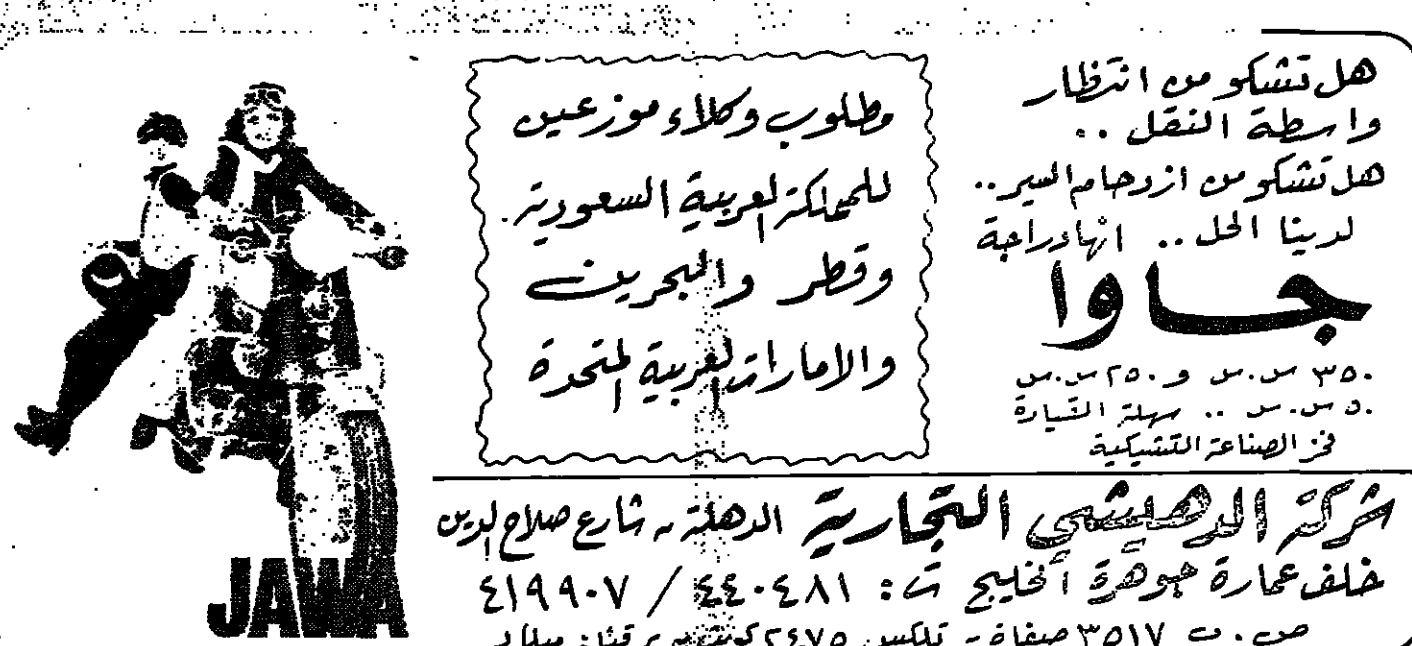 هل تشكو من انتظار
واسطة النقل ..
هل تشكو من ازدحام السير ..
لدينا الحل .. انها دراجة
جاوا
٣٥٠ س.س و ٢٥٠ س.س
٥٠ س.س .. سهلة القيادة
فخر الصناعة التشيكية
مطلوب وكلاء موزعين
للمملكة العربية السعودية .
وقطر والبحرين
والامارات العربية المتحدة
JAWA
شركة الدهيشي التجارية الدهلة - شارع صلاح الدين
خلف عمارة جوهرة الخليج ت : ٤٤٠٤٨١ / ٤١٩٩٠٧
ص . ب ٣٥١٧ صفاة - تلكس ٢٤٧٥